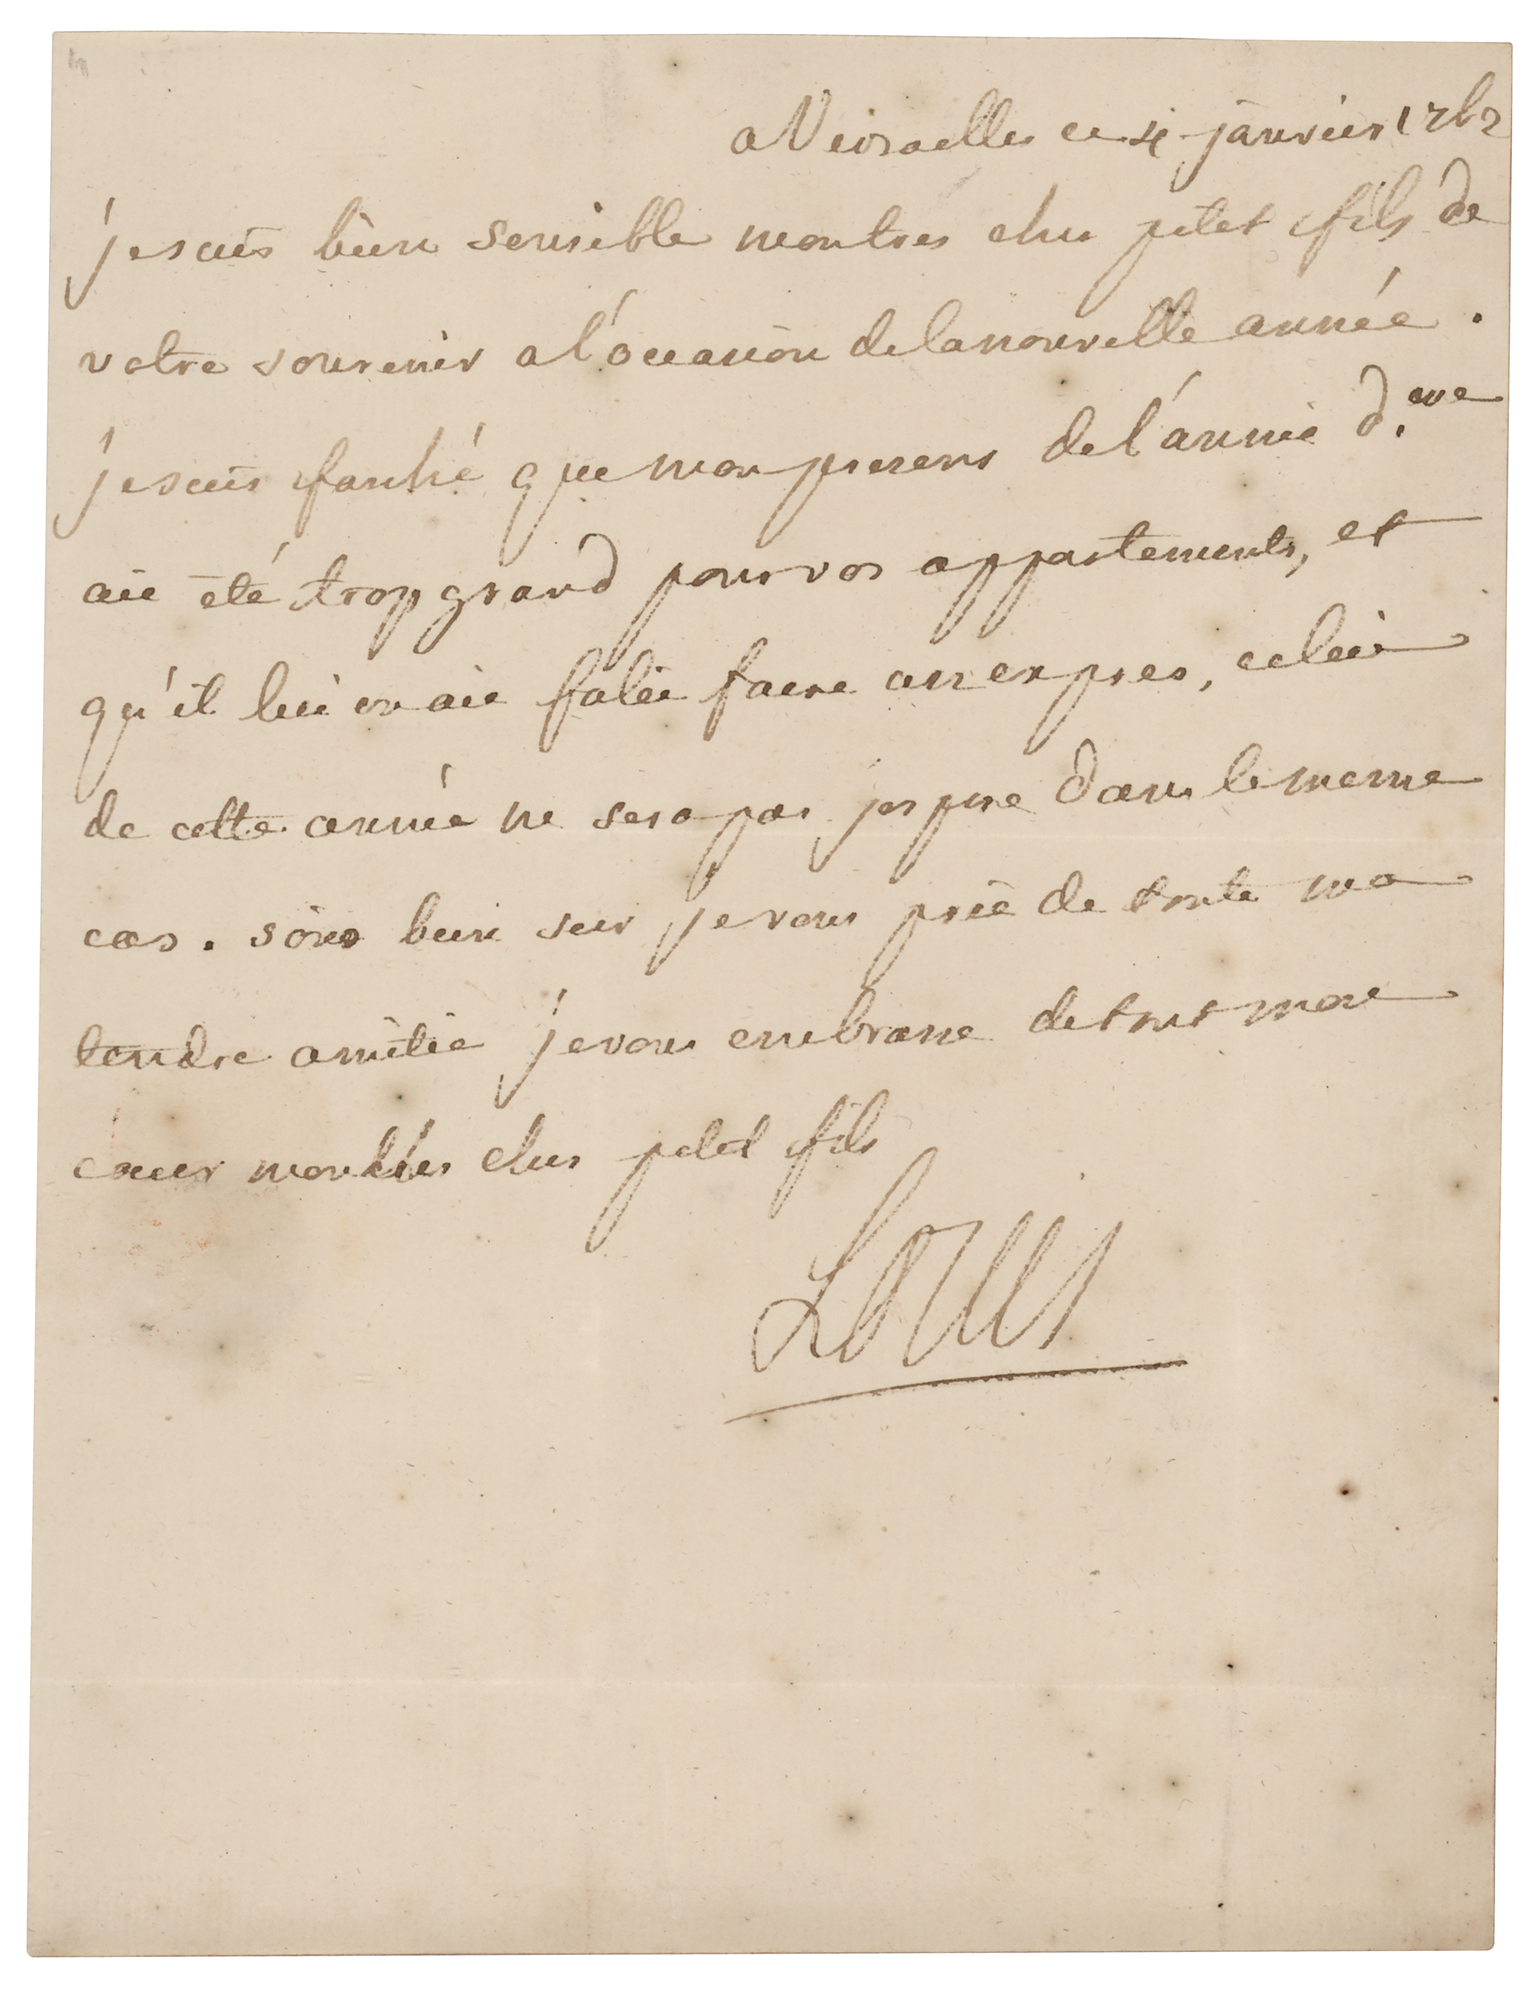 a Versaelles ce 4 janvier 1762
je suis bien sensible mon tres cher petit fils de
votre souvenir a l'occasion de la nouvelle année.
je suis fasché que mon presens de l'année d.ere
aie été trop grand pour vos appartements, et
qu'il lui en aie falu faire un expres, celui
de cette année ne sera pas j'espere dans le meme
cas. soiés bien seur je vous prie de toute ma
tendre amitié je vous embrasse de tout mon
cœur mon tres cher petit fils
Louis